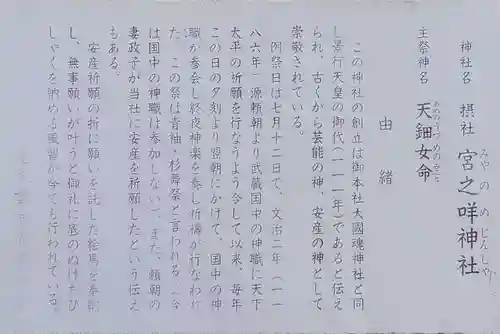 神社名 摂社 宮之咩神社
みやのめじんじゃ
主祭神名 天鈿女命
あめのうづめのみこと
由緒
この神社の創立は御本社大國魂神社と同
じ景行天皇の御代(一一一年)であると伝え
られ、古くから芸能の神、安産の神として
崇敬されている。
例祭日は七月十二日で、文治二年(一一
八六年)源頼朝より武蔵国中の神職に天下
太平の祈願を行なうよう令して以来、毎年
この日の夕刻より翌朝にかけて、国中の神
職が参会し終夜神楽を奏し祈祷が行なわれ
た。この祭は青袖・杉舞祭と言われる(今
は国中の神職は参加しない)。また、頼朝の
妻政子が当社に安産を祈願したという伝え
もある。
安産祈願の折に願いを託した絵馬を奉納
し、無事願いが叶うと御礼に底のぬけたひ
しゃくを納める風習が今でも行われている。